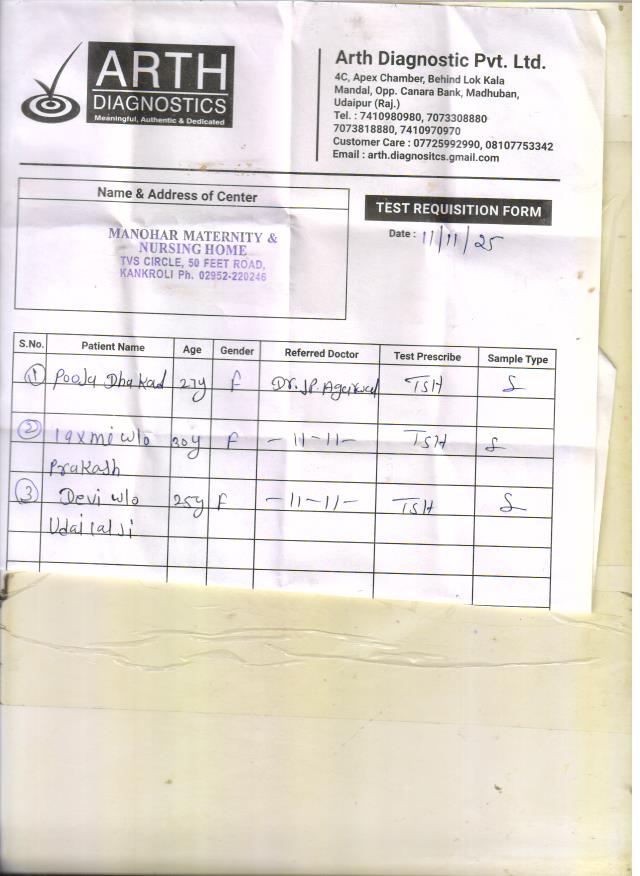 ARTH
DIAGNOSTICS
Meaningful, Authentic & Dedicated
Arth Diagnostic Pvt. Ltd.
4C, Apex Chamber, Behind Lok Kala
Mandal, Opp. Canara Bank, Madhuban,
Udaipur (Raj.)
Tel. : 7410980980, 7073308880
7073818880, 7410970970
Customer Care : 07725992990, 08107753342
Email : arth.diagnositcs.gmail.com
Name & Address of Center
MANOHAR MATERNITY &
NURSING HOME
TVS CIRCLE, 50 FEET ROAD,
KANKROLI Ph. 02952-220246
TEST REQUISITION FORM
Date : 11/11/25
S.No. Patient Name Age Gender Referred Doctor Test Prescribe Sample Type
1 Pooja Dhakad 27y F Dr. JP. Agarwal TSH S
2 laxmi w/o 30y F -11-11- TSH S
Prakash
3 Devi w/o 25y F -11-11- TSH S
Udailalji